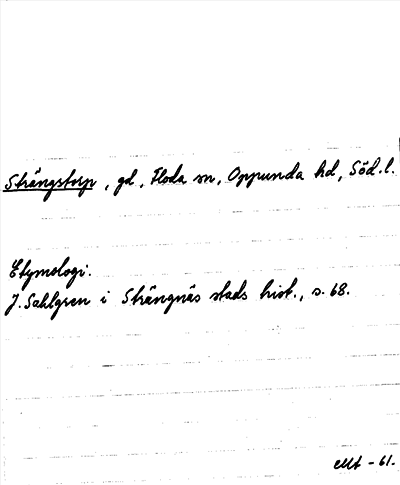 Strängstorp, gd, Floda sn, Oppunda hd, Söd.l.
Etymologi.
J. Sahlgren i Strängnäs stads hist., s. 68.
-61.